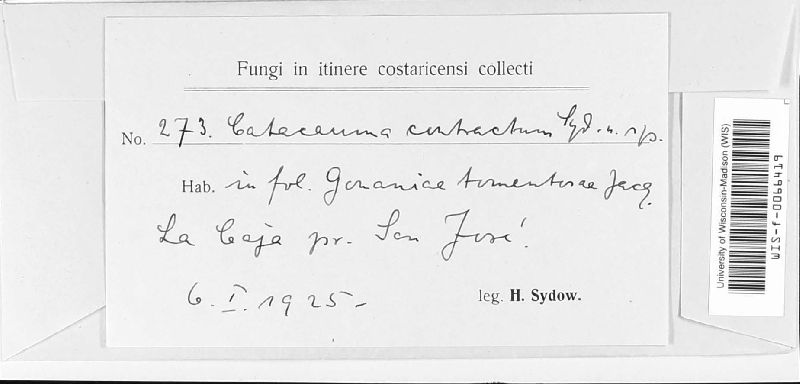 Fungi in itinere costaricensi collecti
No. 273. Catacauma contractum Syd. n. sp.
Hab. in fol. Gouaniae tomentosae Jacq.
La Caja pr. San José.
6. I. 1925 –
leg. H. Sydow.
University of Wisconsin-Madison (WIS)
WIS-f-0066419